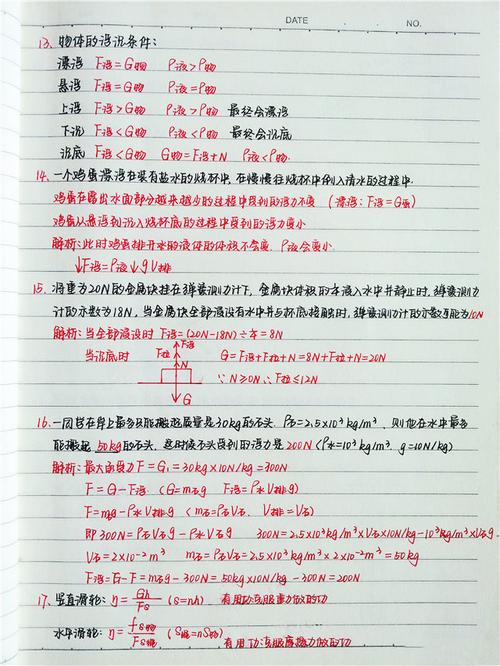 DATE NO.
13. 物体的浮沉条件:
漂浮 F浮=G物 ρ液>ρ物
悬浮 F浮=G物 ρ液=ρ物
上浮 F浮>G物 ρ液>ρ物 最终会漂浮
下沉 F浮<G物 ρ液<ρ物 最终会沉底
沉底 F浮<G物 G物=F浮+N ρ液<ρ物
14. 一个鸡蛋漂浮在装有盐水的烧杯中,在慢慢往烧杯中倒入清水的过程中.
鸡蛋在露出水面部分越来越少的过程中受到的浮力不变 (漂浮:F浮=G蛋)
鸡蛋从悬浮到沉入烧杯底的过程中受到的浮力变小
解析:此时鸡蛋排开水的液体的体积不会变,ρ液会变小
↓F浮=ρ液↓gV排
15. 将重为20N的金属块挂在弹簧测力计下,金属块体积的1/4浸入水中并静止时,弹簧测力
计的示数为18N,当金属块全部浸没在水中并与杯底接触时,弹簧测力计的示数可能为10N
解析:当全部浸没时 F浮=(20N-18N)÷1/4=8N
当沉底时 F浮 F拉 N G G=F浮+F拉+N=8N+F拉+N=20N
∵N≥0N∴F拉≤12N
16. 一同学在岸上最多只能搬起质量是30kg的石头. ρ石=2.5×10³kg/m³. 则他在水中最多
能搬起 50kg的石头. 这时候石头受到的浮力是 200N (ρ水=10³kg/m³. g=10N/kg)
解析:最大的臂力 F=G₁=30kg×10N/kg=300N
F=G-F浮. (G=m石g F浮=ρ水V排g)
F=m石g-ρ水V排g (m石=ρ石V石. V排=V石)
即 300N=ρ石V石g-ρ水V石g 300N=2.5×10³kg/m³×V石×10N/kg-10³kg/m³×V石g
V石=2×10⁻²m³ m石=ρ石V石=2.5×10³kg/m³×2×10⁻²m³=50kg
F浮=G-F=m石g-300N=50kg×10N/kg-300N=200N
17. 竖直滑轮:η=Gh/Fs (s=nh). 有用功:克服重力做的功
水平滑轮:η=fs物/Fs绳 (s绳=ns物) 有用功:克服摩擦力做的功